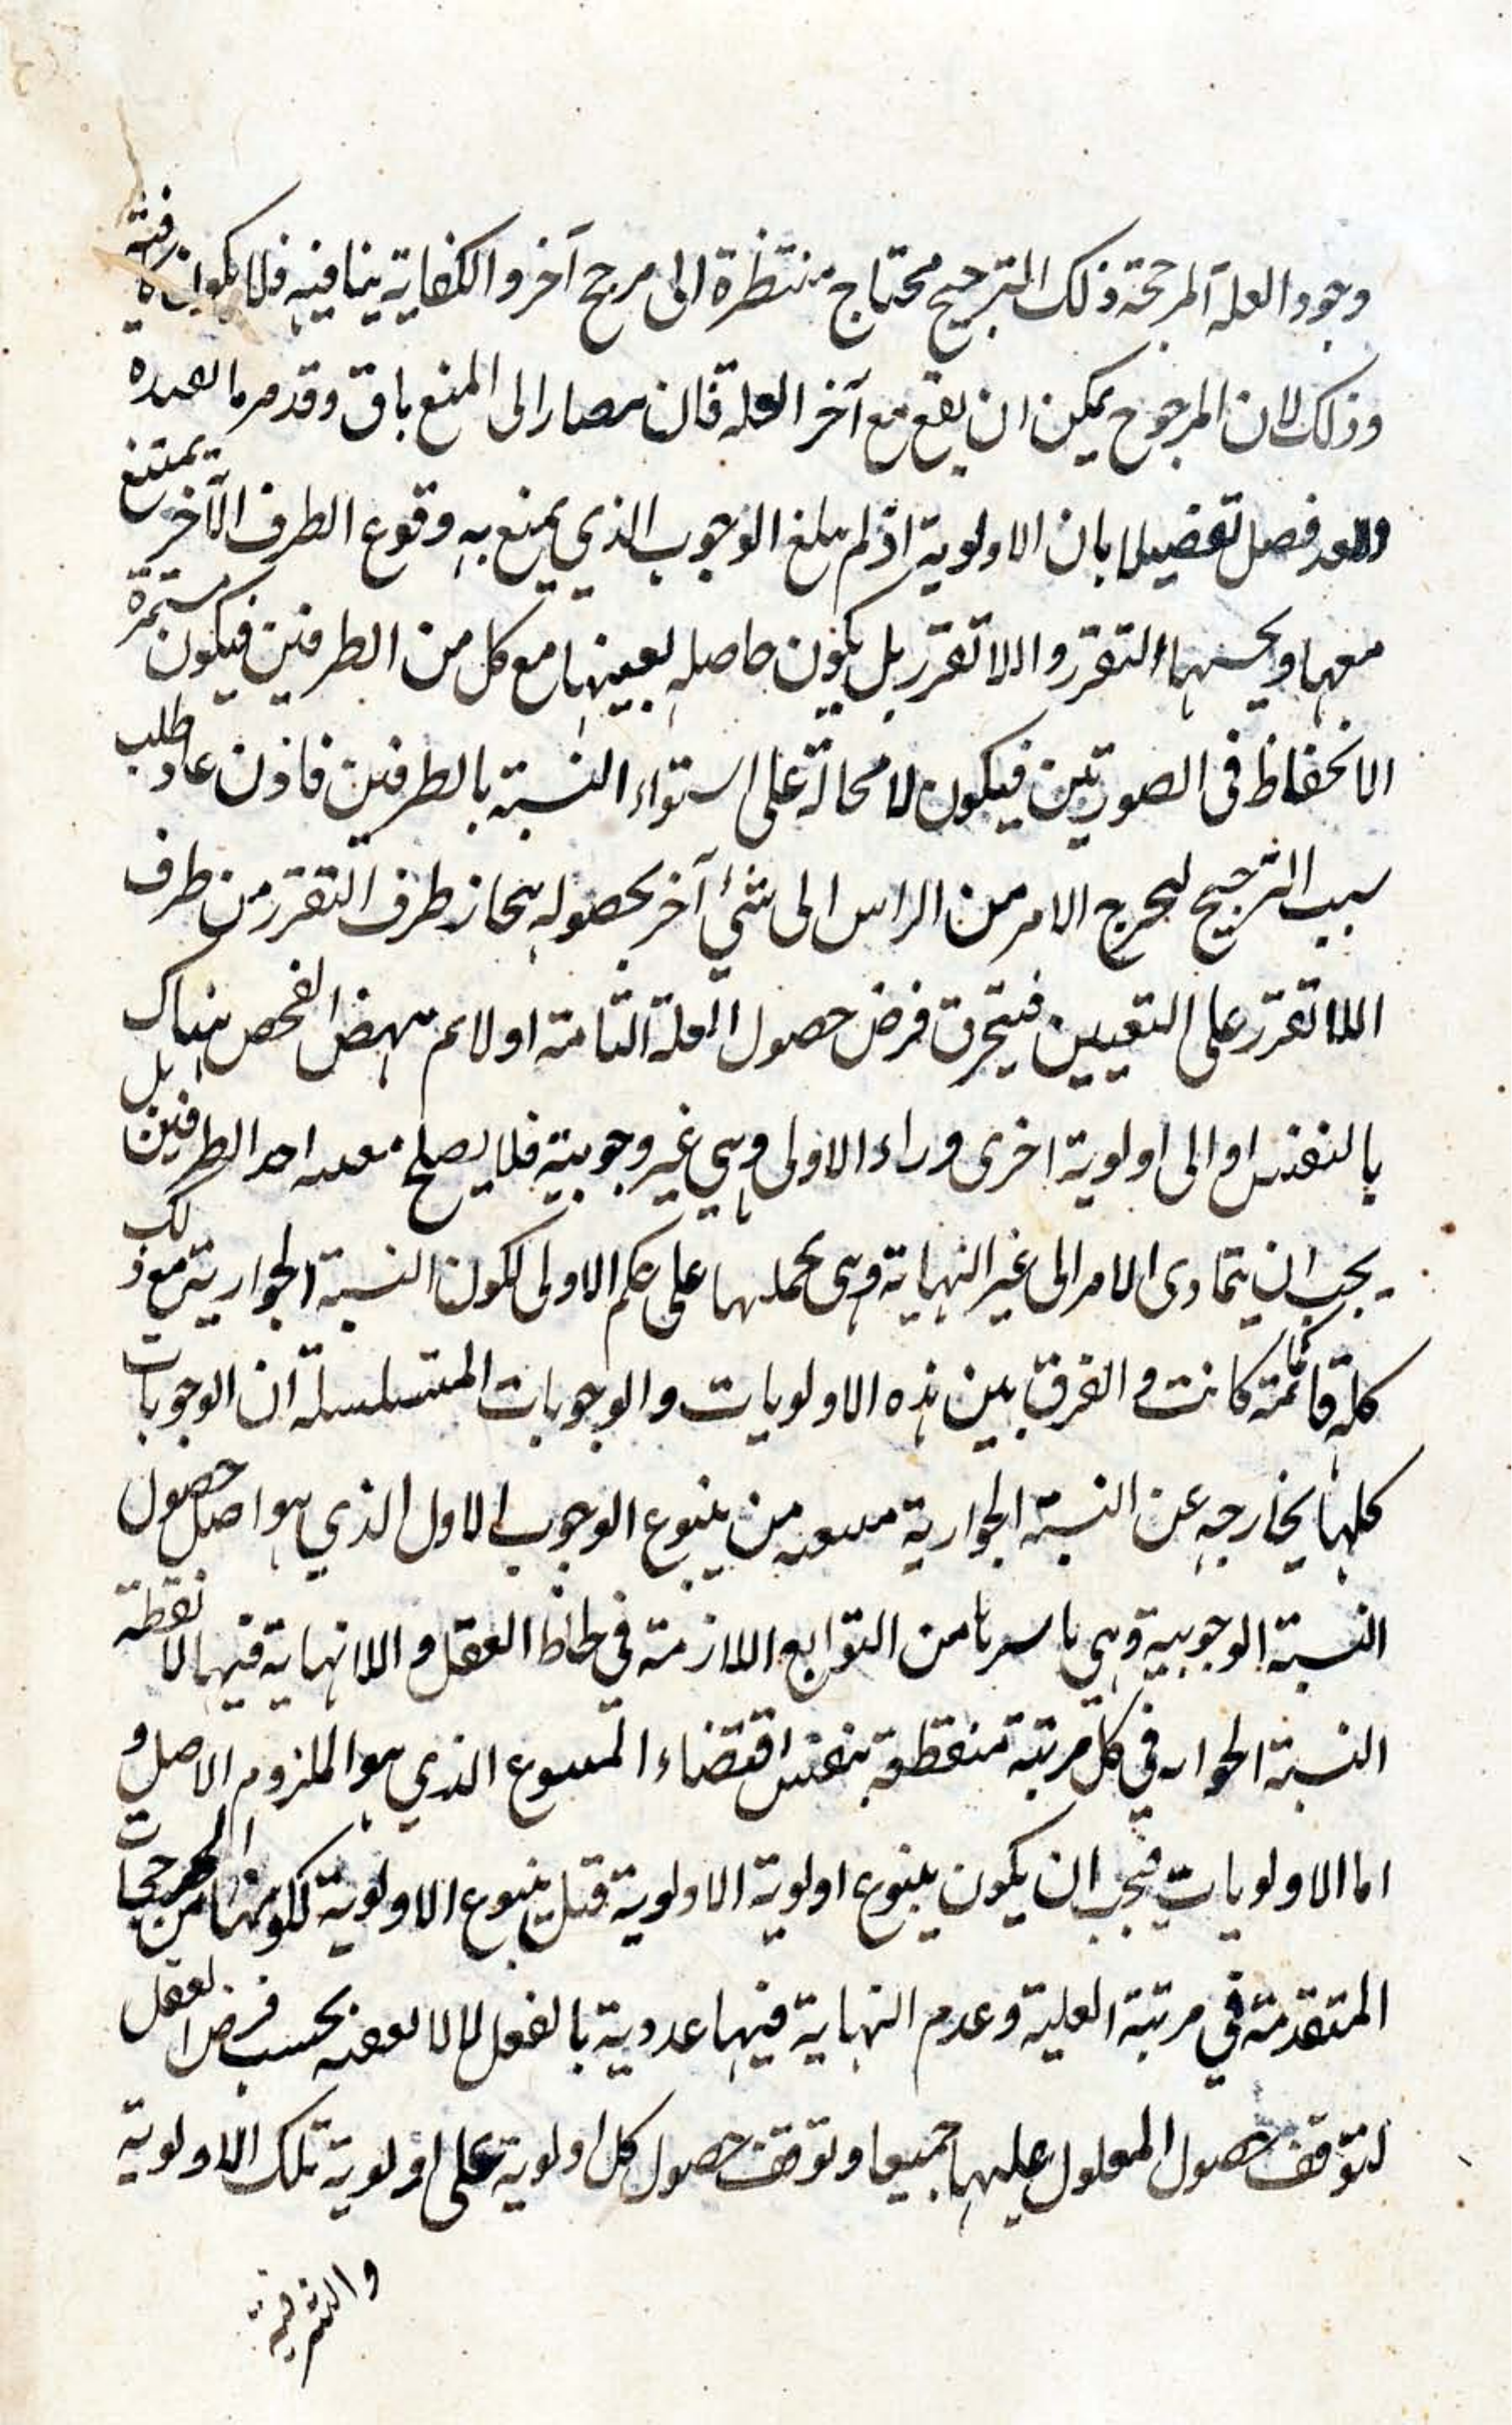 وجود العلة المرجحة ذلك الترجيح محتاج منتظرة الى مرجح آخر والكفاية ينافيه فلا يكون
وذلك لان المرجوح يمكن ان يقع مع آخر العله فان صار الى المنع باق وقد مر ما
فصل تفصيلا بان الاولوية اذ لم يبلغ الوجوب الذي يمنع به وقوع الطرف الآخر يمتنع
معها و التقرر واللاتقرر بل يكون حاصله بعينها مع كل من الطرفين فيكون مستمرة
الانحفاظ في الصورتين فيكون لا محالة على استواء النسبة بالطرفين فاذن عاد طلب
سبب الترجيح ليخرج الامر من الراس الى شئ آخر بحصوله ينحاز طرف التقرر من طرف
اللاتقرر على التعيين فيتخرق فرض حصول العلة التامة اولا ثم ينهض الفحص هناك
بالنفس او الى اولوية اخرى وراء الاولى وهي غير وجوبية فلا يصلح احد الطرفين بل
يجب ان يتمادى الامر الى غير النهاية وهي بجملها على حكم الاولى لكون النسبة الجوازية مع ذلك
كله قائمة كما كانت والفرق بين هذه الاولويات والوجوبات المتسلسلة ان الوجوبات
كلها خارجه عن النسبة الجوازية من ينبوع الوجوب الاول الذي هو اصل حصول
النسبة الوجوبية وهي باسرها من التوابع اللازمة في لحاظ العقل واللانهاية فيها لا نقطة
النسبة الجوازية في كل مرتبة منقطعة بنفس اقتضاء الذي هو الملزوم الاصل و
اما الاولويات فيجب ان يكون ينبوع اولوية الاولوية قبل ينبوع الاولوية لكونها من المرجحات
المتقدمة في مرتبة العلية وعدم النهاية فيها عددية بالفعل لا بحسب فرض العقل
لتوقف حصول المعلول عليها جميعا وتوقف حصول كل اولوية على اولوية تلك الاولوية